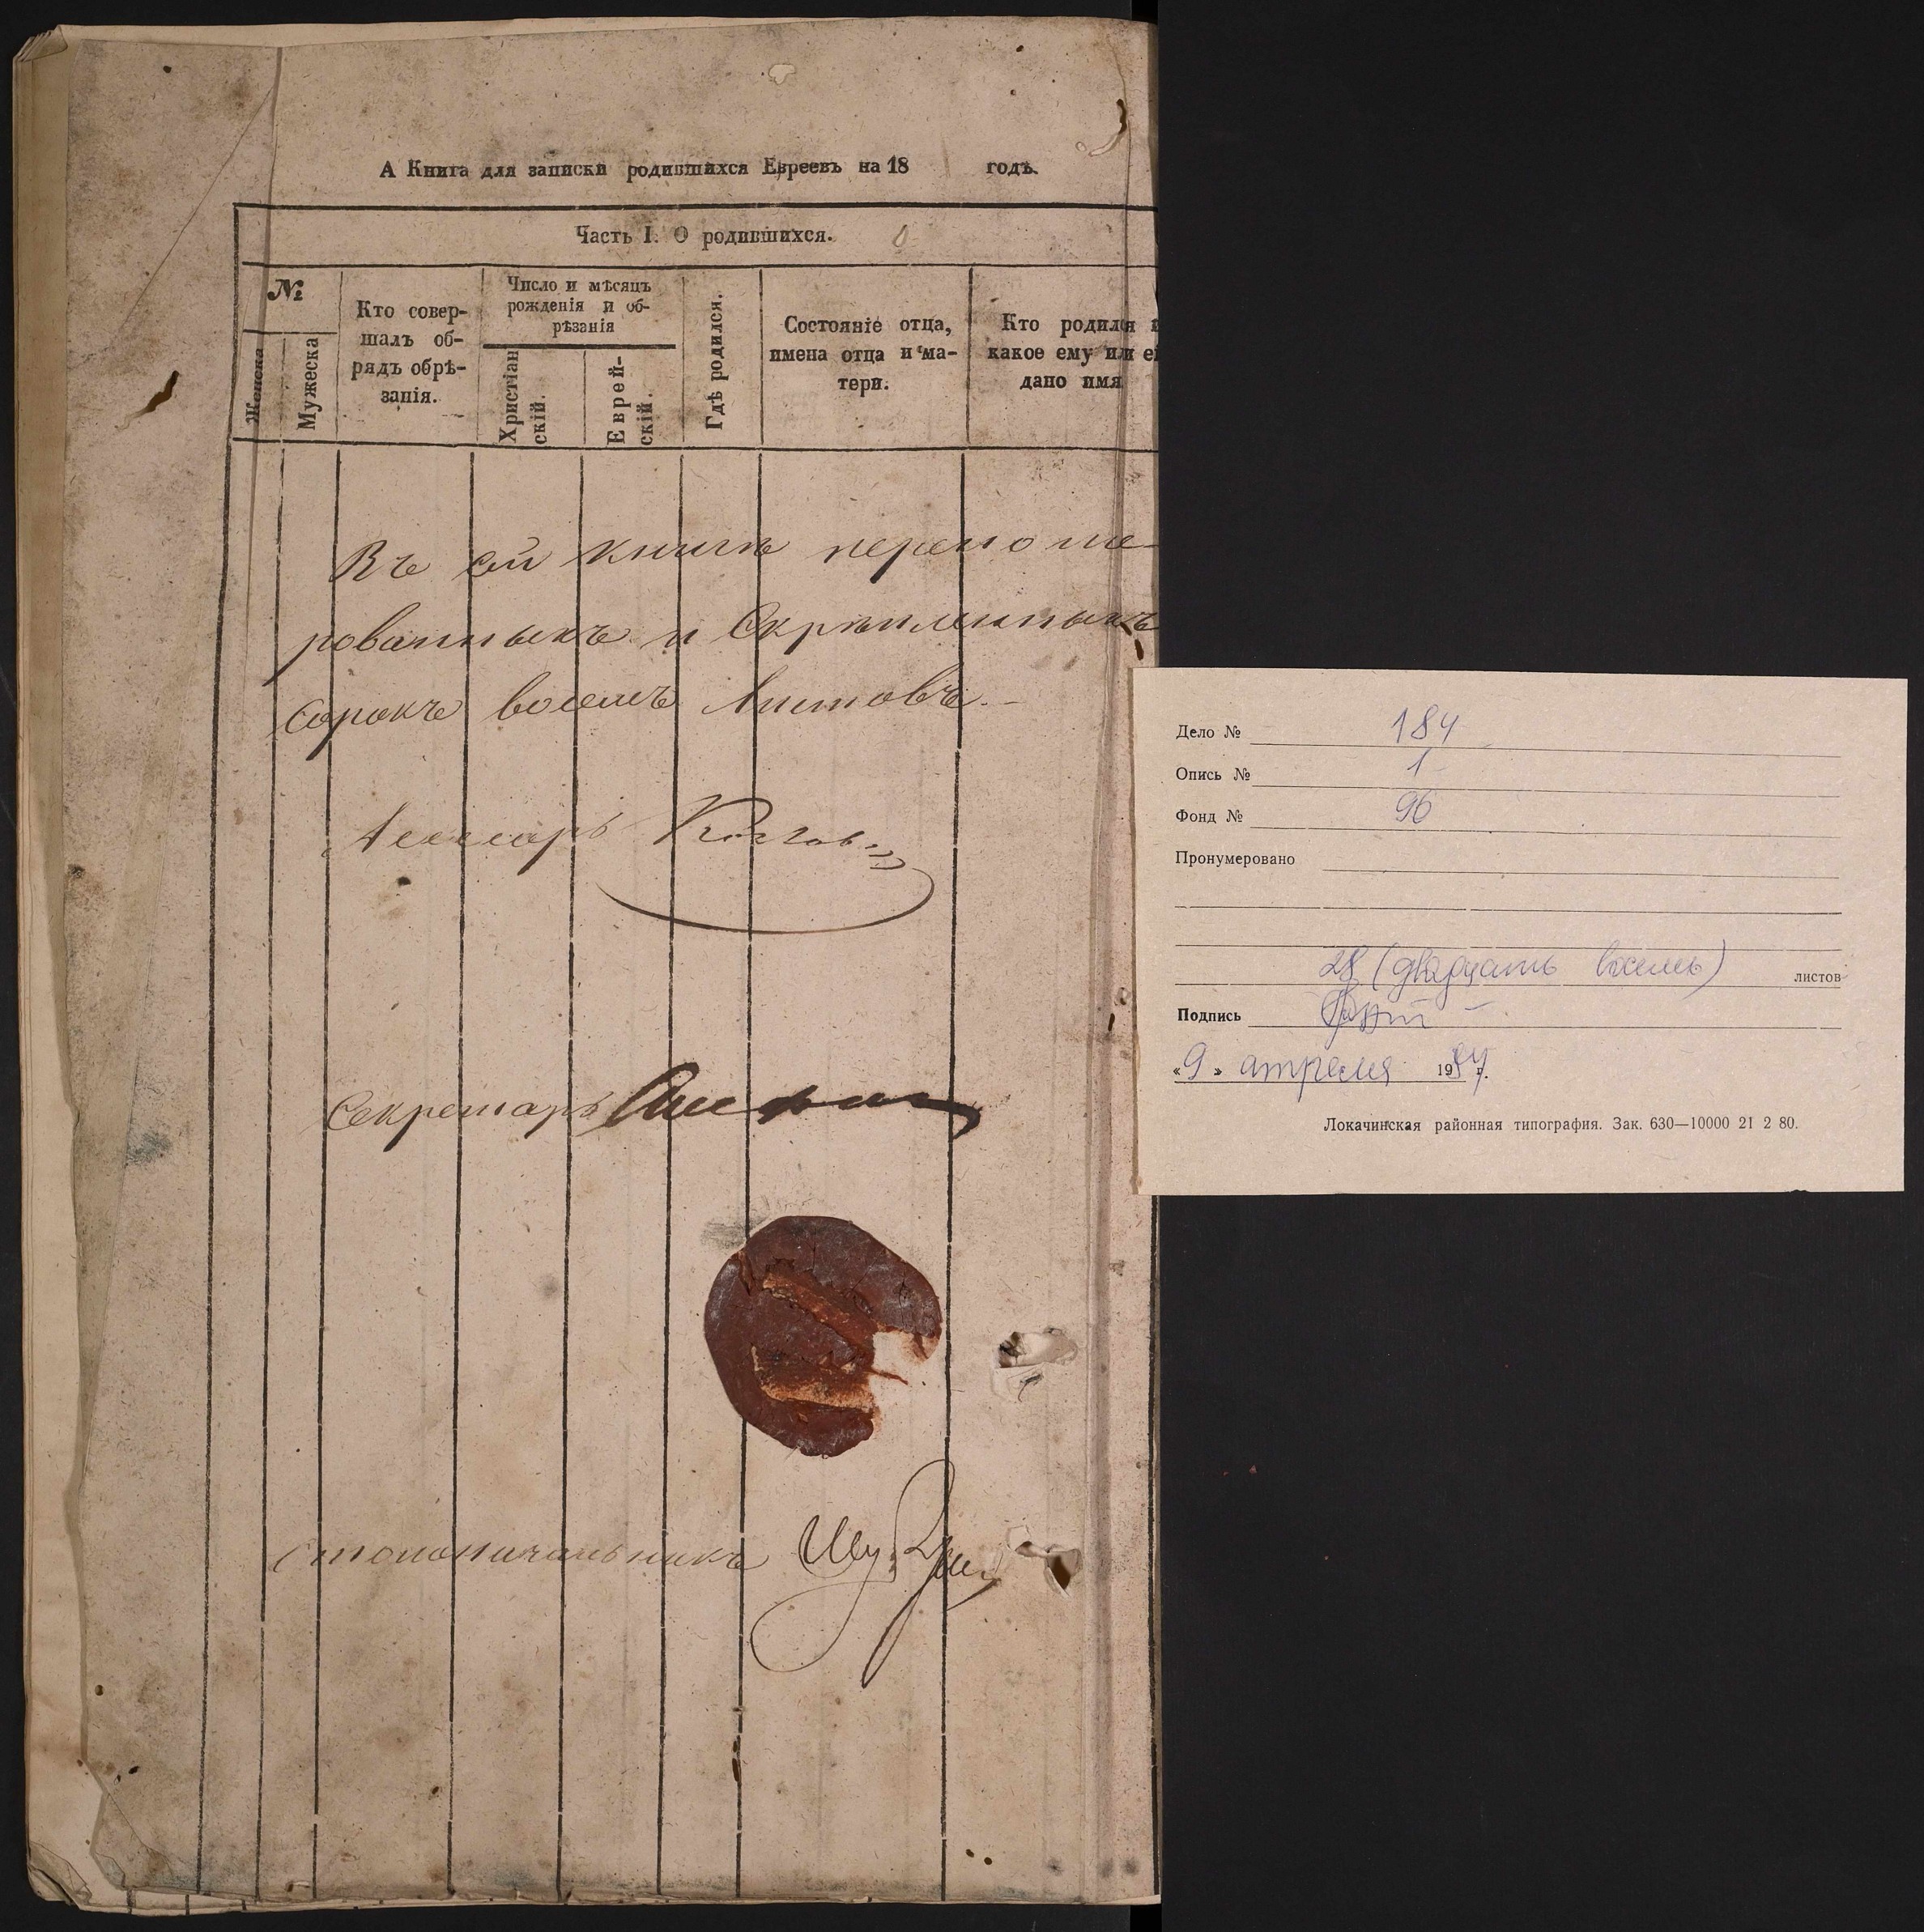 А Книга для записки родившихся Евреевъ на 18 годъ.
Часть I. О родившихся.
№
Женска
Мужеска
Кто совер-
шалъ об-
рядъ обрѣ-
занія.
Число и мѣсяцъ
рожденія и об-
рѣзанія
Христіан
скій.
Еврей-
скій.
Гдѣ родился.
Состояніе отца,
имена отца и ма-
тери.
Кто родился и
какое ему или ей
дано имя
Въ сей книгѣ перенуме-
рованныхъ и скрѣпленныхъ
сорокъ восемь листовъ.
Ассесоръ
Секретарь
Столоначальникъ
Дело № 184
Опись № 1
Фонд № 96
Пронумеровано
28 (двадцать восемь) листов
Подпись
«9» апреля 1984 г.
Локачинская районная типография. Зак. 630—10000 21 2 80.